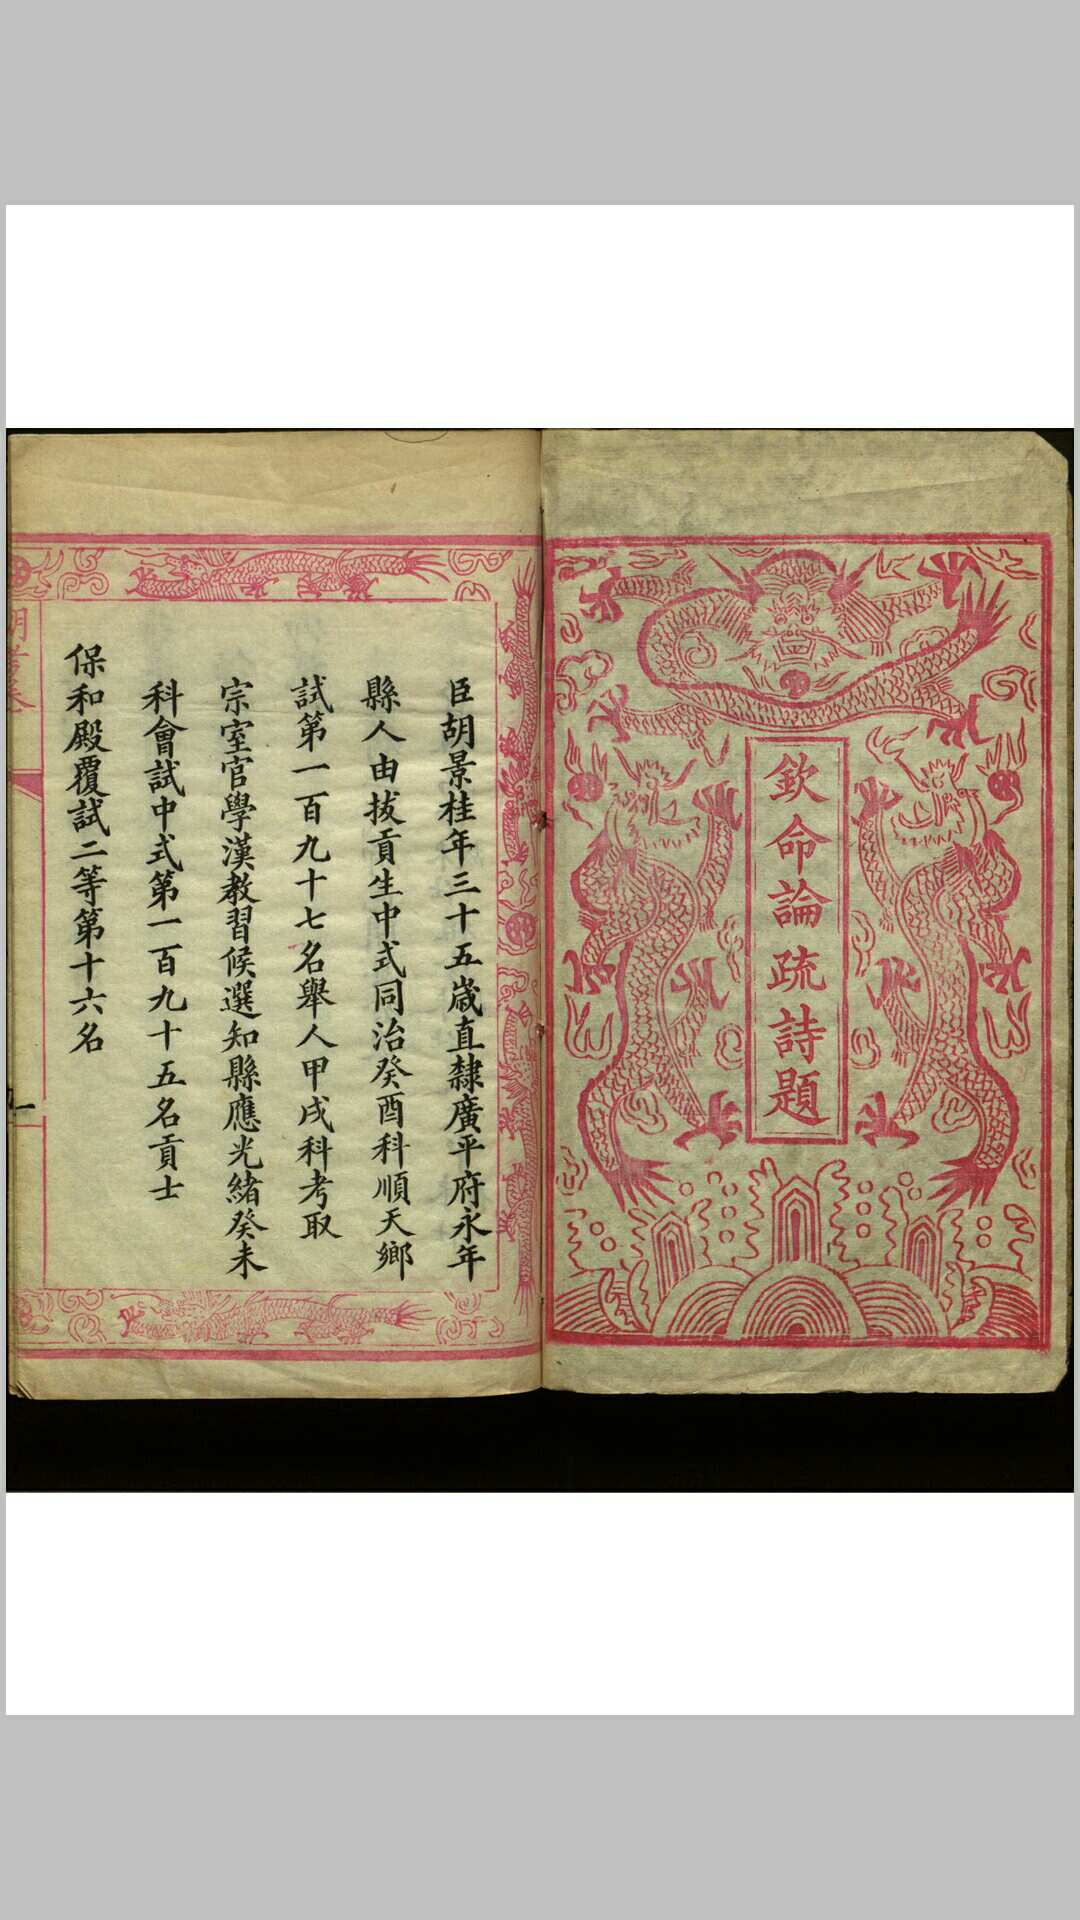 欽命論疏詩題
臣胡景桂年三十五歲直隸廣平府永年
縣人由拔貢生中式同治癸酉科順天鄉
試第一百九十七名舉人甲戌科考取
宗室官學漢教習候選知縣應光緒癸未
科會試中式第一百九十五名貢士
保和殿覆試二等第十六名
一